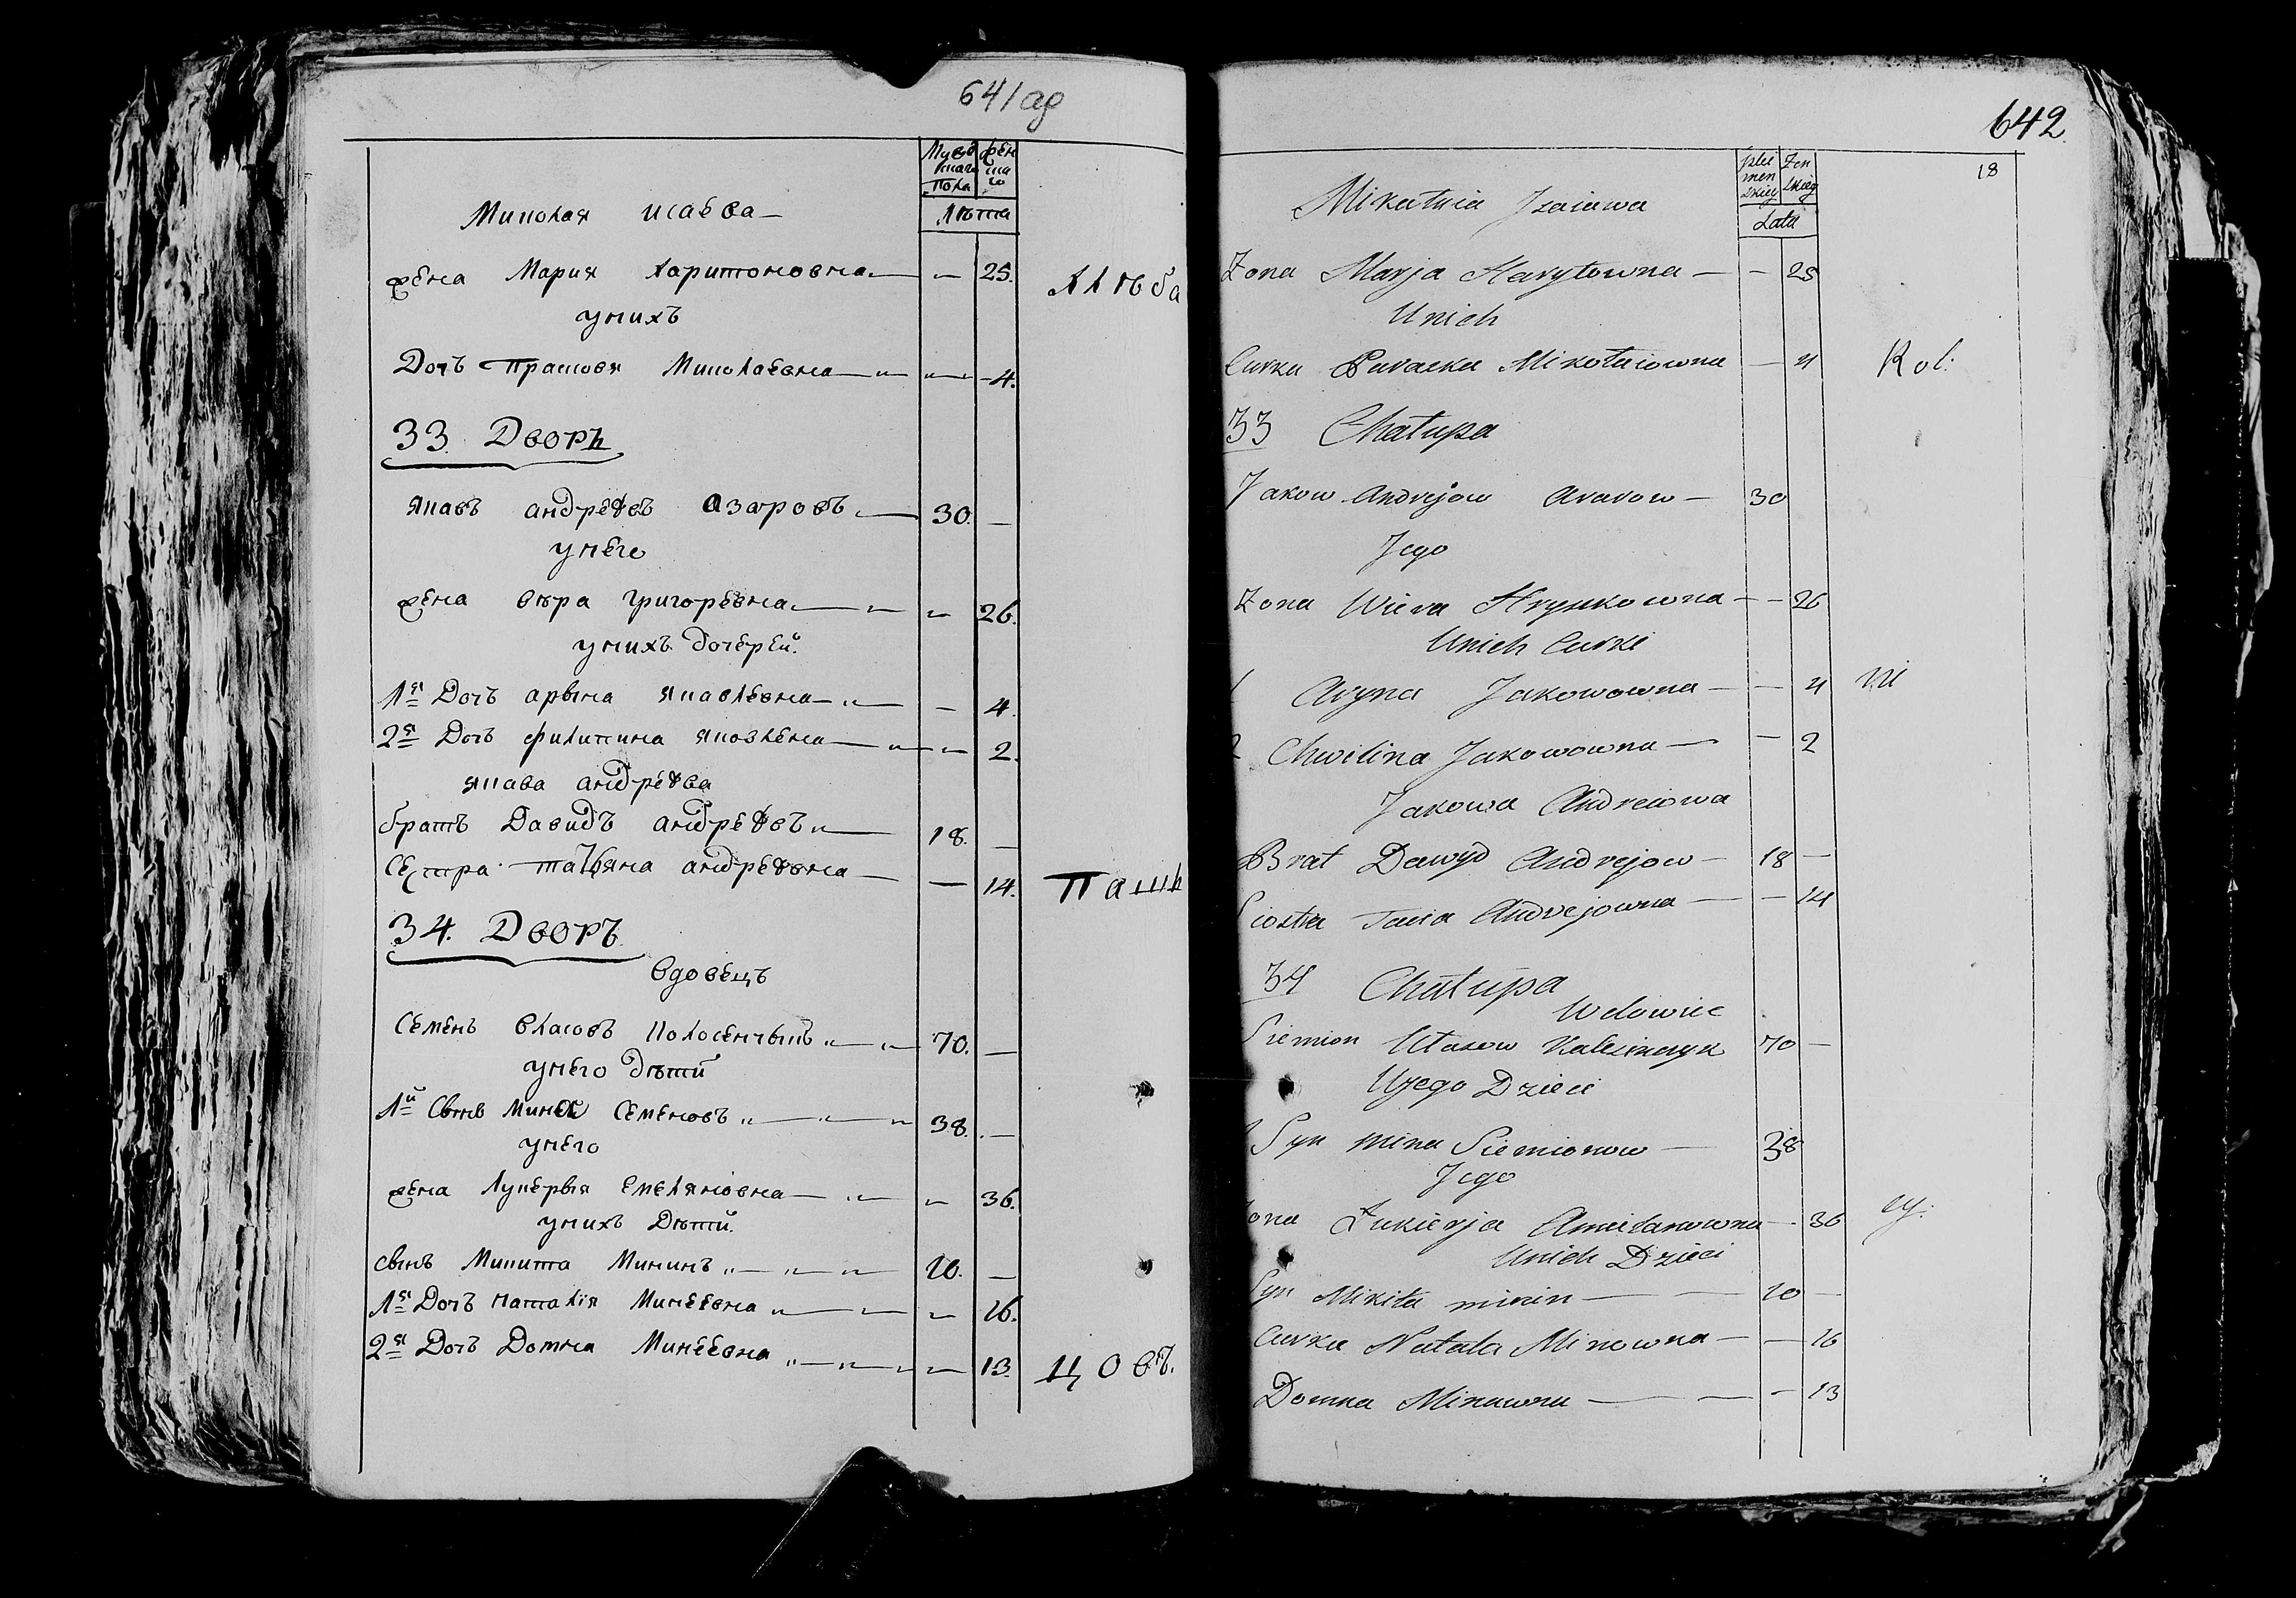 641 об
Мужскаго пола
женскаго
Лѣта
Миколая исаева —
жена Мария харитоновна — — 25.
унихъ
Дочь Прасковя Миколаевна — — 4.
Хлѣба
33. Дворъ
Яковъ андреевъ азаровъ — 30. —
унего
жена вѣра григоревна — — 26.
унихъ дочерей.
1я Дочь арына яковлевна — — 4.
2я Дочь филипина яковлена — — 2.
якова андреева
братъ Давидъ андреевъ — 18. —
Сестра татьяна андреевна — — 14.
Пашн
34. Дворъ
вдовецъ
Семенъ власовъ Колосенчыкъ — 70. —
унего дѣтй
1й Сынъ Миней Семеновъ — 38. —
унего
жена Лукерья Емеляновна — — 36.
унихъ Дѣтй.
сынъ Микита Мининъ — 20. —
1я Дочь наталія Минеевна — — 16.
2я Дочь Домна Минеевна — — 13.
цовъ.
642
18
Zen skiey
Lata
Mikałaia Izaiawa
Zona Marja Harytowna — — 25
Unich
Curka Paraska Mikołaiowna — 4
Rol:
33 Chałupa
Jakow Andrejow Azarow — 30
Jego
Zona Wiera Hryszkowna — — 26
Unich Curki
1 Aryna Jakowowna — — 4
ni
2 Chwilina Jakowowna — — 2
Jakowa Andreiowa
Brat Dawyd Andrejow — 18 —
Siostra Tacia Andrejowna — — 14
34 Chałupa
Wdowiec
Siemion Ułasow Kalesinczyk 70 —
Ujego Dzieci
1 Syn Mina Siemionow — 38
Jego
Zona Łukierja Amielanowna — 36
cy:
Unich Dzieci
Syn Mikita minin — 20 —
Curka Natala Minowna — — 16
Domna Minawna — — 13